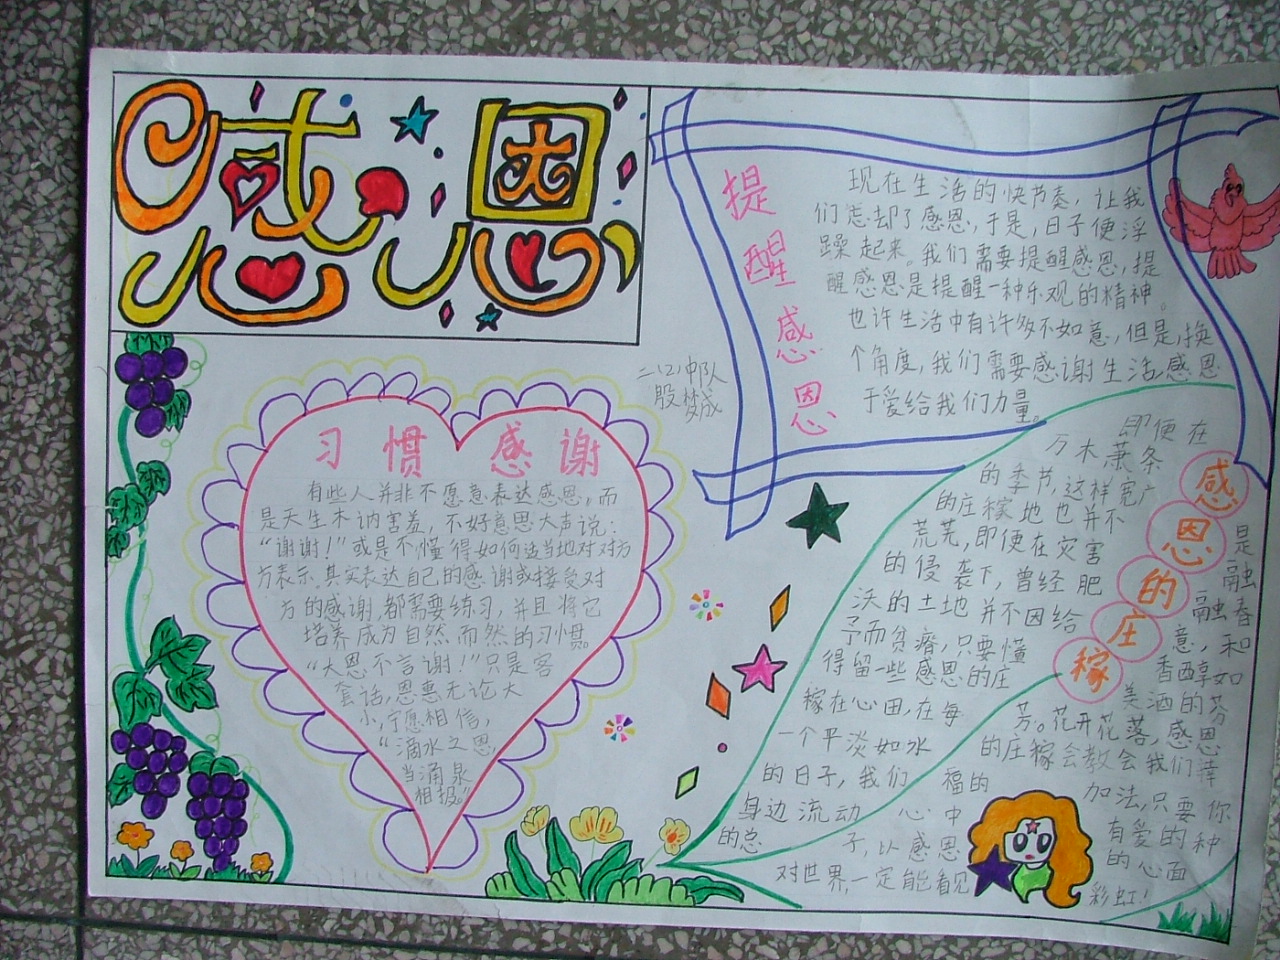 感恩
提醒感恩
现在生活的快节奏，让我
们忘却了感恩，于是，日子便浮
躁起来。我们需要提醒感恩，提
醒感恩是提醒一种乐观的精神。
也许生活中有许多不如意，但是，换
个角度，我们需要感谢生活，感恩
于爱给我们力量。
二(2)中队
殷梦成
习惯感谢
有些人并非不愿意表达感恩，而
是天生木讷害羞，不好意思大声说：
“谢谢！”或是不懂得如何适当地对对方
方表示，其实表达自己的感谢或接受对
方的感谢，都需要练习，并且将它
培养成为自然而然的习惯
“大恩不言谢！”只是客
套话，恩惠无论大
小，宁愿相信，
“滴水之恩，
当涌泉
相报。”
感恩的庄稼
即便在
万木萧条
的季节，这样宽广
的庄稼地也并不
荒芜，即便在灾害
的侵袭下，曾经肥
沃的土地并不因给
予而贫瘠，只要懂
得留一些感恩的庄
稼在心田，在每
一个平淡如水
的日子，我们
身边流动
的总
是
融
融春
意，和
香醇如
美酒的芬
芳。花开花落，感恩
的庄稼会教会我们幸
福的
加法，只要你
心中
有爱的种
子，以感恩
的心面
对世界，一定能看见
彩虹！